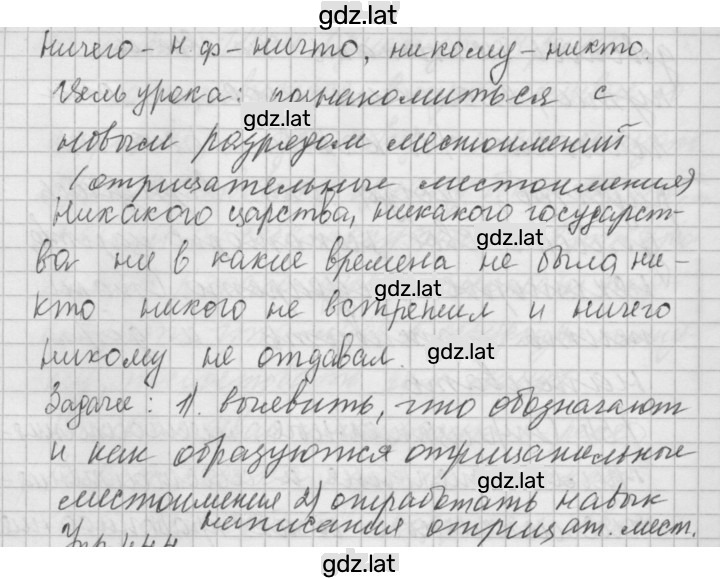 gdz.lat
Ничего - н.ф - ничто, никому - никто.
Цель урока: познакомиться с
gdz.lat
новым разрядом местоимений
(отрицательные местоимения)
Никакого царства, никакого государст-
gdz.lat
ва ни в какие времена не была ни-
gdz.lat
кто никого не встретил и ничего
никому не отдавал.
gdz.lat
Задачи: 1). выявить, что обозначают
и как образуются отрицательные
gdz.lat
местоимения 2) отработать навык
написания отрицат. мест.
Упр 444
gdz.lat